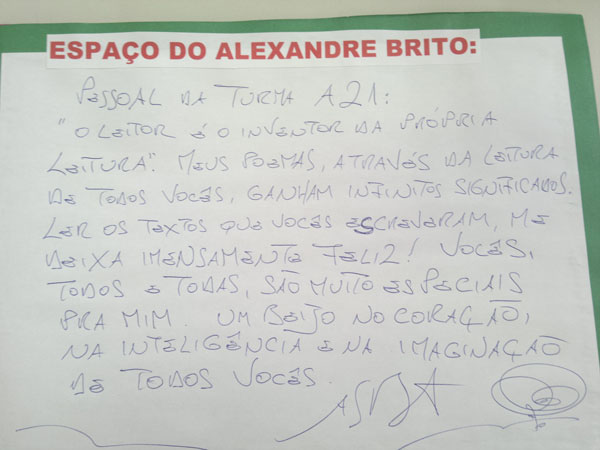 ESPAÇO DO ALEXANDRE BRITO:
PESSOAL DA TURMA A21:
"O LEITOR É O INVENTOR DA PRÓPRIA
LEITURA". MEUS POEMAS, ATRAVÉS DA LEITURA
DE TODOS VOCÊS, GANHAM INFINITOS SIGNIFICADOS.
LER OS TEXTOS QUE VOCÊS ESCREVERAM, ME
DEIXA IMENSAMENTE FELIZ! VOCÊS,
TODOS E TODAS, SÃO MUITO ESPECIAIS
PRA MIM. UM BEIJO NO CORAÇÃO,
NA INTELIGÊNCIA E NA IMAGINAÇÃO
DE TODOS VOCÊS.